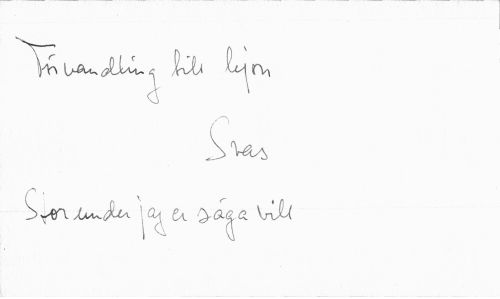 Förvandling till lejon
Svas
Stor under jag er säga vill